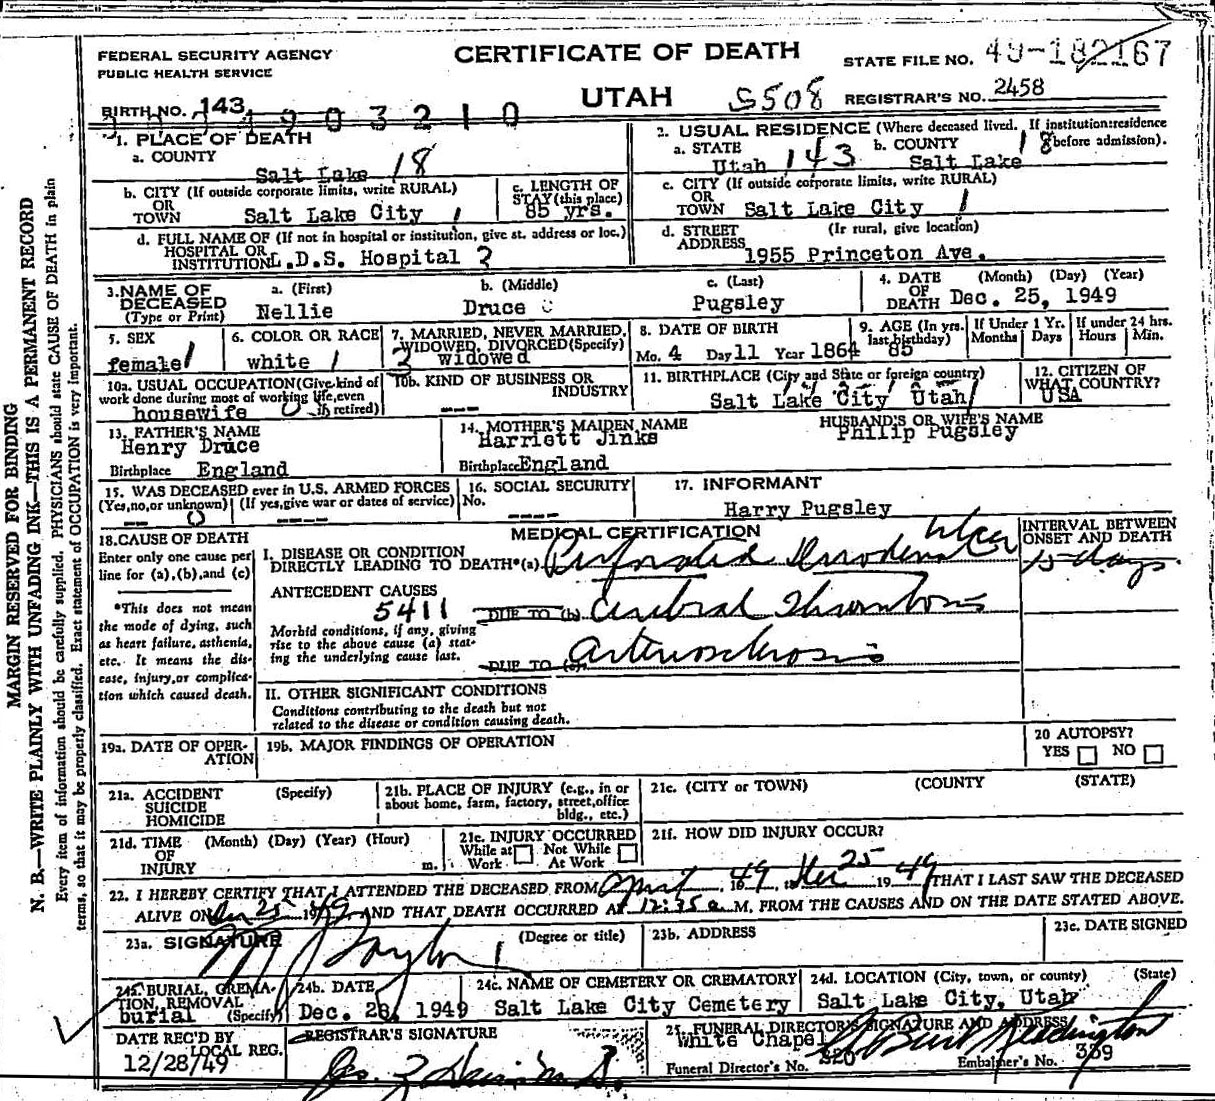 FEDERAL SECURITY AGENCY
PUBLIC HEALTH SERVICE
CERTIFICATE OF DEATH
STATE FILE NO. 49-182167
BIRTH NO. 143
UTAH
S508
REGISTRAR'S NO. 2458
1 4 9 0 3 2 1 0
1. PLACE OF DEATH
a. COUNTY
Salt Lake 18
2. USUAL RESIDENCE (Where deceased lived. If institution:residence before admission).
a. STATE
Utah 143
b. COUNTY 18
Salt Lake
b. CITY (If outside corporate limits, write RURAL)
OR
TOWN Salt Lake City 1
c. LENGTH OF
STAY (this place)
85 yrs.
c. CITY (If outside corporate limits, write RURAL)
OR
TOWN Salt Lake City 1
d. FULL NAME OF (If not in hospital or institution, give st. address or loc.)
HOSPITAL OR
INSTITUTION L.D.S. Hospital 3
d. STREET (If rural, give location)
ADDRESS
1955 Princeton Ave.
3. NAME OF
DECEASED
(Type or Print)
a. (First)
Nellie
b. (Middle)
Druce
c. (Last)
Pugsley
4. DATE (Month) (Day) (Year)
OF
DEATH Dec. 25, 1949
5. SEX
female 1
6. COLOR OR RACE
white 1
7. MARRIED, NEVER MARRIED,
WIDOWED, DIVORCED (Specify)
3 widowed
8. DATE OF BIRTH
Mo. 4 Day 11 Year 1864
9. AGE (In yrs.
last birthday)
85
If Under 1 Yr.
Months Days
If under 24 hrs.
Hours Min.
10a. USUAL OCCUPATION (Give kind of
work done during most of working life, even
if retired)
housewife 0
10b. KIND OF BUSINESS OR
INDUSTRY
---
11. BIRTHPLACE (City and State or foreign country)
Salt Lake City Utah
12. CITIZEN OF
WHAT COUNTRY?
USA
13. FATHER'S NAME
Henry Druce
Birthplace England
14. MOTHER'S MAIDEN NAME
Harriett Jinks
Birthplace England
HUSBAND'S OR WIFE'S NAME
Philip Pugsley
15. WAS DECEASED ever in U.S. ARMED FORCES
(Yes, no, or unknown) (If yes, give war or dates of service)
-- 0 ---
16. SOCIAL SECURITY
No.
---
17. INFORMANT
Harry Pugsley
18. CAUSE OF DEATH
Enter only one cause per
line for (a), (b), and (c)
*This does not mean
the mode of dying, such
as heart failure, asthenia,
etc. It means the dis-
ease, injury, or complica-
tion which caused death.
MEDICAL CERTIFICATION
I. DISEASE OR CONDITION
DIRECTLY LEADING TO DEATH*(a) Perforated Duodenal Ulcer
INTERVAL BETWEEN
ONSET AND DEATH
15 days.
ANTECEDENT CAUSES
5411
DUE TO (b) Cerebral Thrombosis
Morbid conditions, if any, giving
rise to the above cause (a) stat-
ing the underlying cause last.
DUE TO (c) Arteriosclerosis
II. OTHER SIGNIFICANT CONDITIONS
Conditions contributing to the death but not
related to the disease or condition causing death.
19a. DATE OF OPER-
ATION
19b. MAJOR FINDINGS OF OPERATION
20 AUTOPSY?
YES NO
21a. ACCIDENT (Specify)
SUICIDE
HOMICIDE
21b. PLACE OF INJURY (e.g., in or
about home, farm, factory, street, office
bldg., etc.)
21c. (CITY OR TOWN) (COUNTY) (STATE)
21d. TIME (Month) (Day) (Year) (Hour)
OF
INJURY m.
21e. INJURY OCCURRED
While at Not While
Work At Work
21f. HOW DID INJURY OCCUR?
22. I HEREBY CERTIFY THAT I ATTENDED THE DECEASED FROM April, 1949, Dec 25 1949 THAT I LAST SAW THE DECEASED
ALIVE ON Dec 25 1949 AND THAT DEATH OCCURRED AT 12:35 a M. FROM THE CAUSES AND ON THE DATE STATED ABOVE.
23a. SIGNATURE (Degree or title)
Taylor
23b. ADDRESS
23c. DATE SIGNED
24a. BURIAL, CREMA-
TION, REMOVAL
burial (Specify)
24b. DATE
Dec. 28, 1949
24c. NAME OF CEMETERY OR CREMATORY
Salt Lake City Cemetery
24d. LOCATION (City, town, or county) (State)
Salt Lake City, Utah
DATE REC'D BY
LOCAL REG.
12/28/49
REGISTRAR'S SIGNATURE
25. FUNERAL DIRECTOR'S SIGNATURE AND ADDRESS
White Chapel
Funeral Director's No. 320
Embalmer's No. 359
MARGIN RESERVED FOR BINDING
N. B.—WRITE PLAINLY WITH UNFADING INK—THIS IS A PERMANENT RECORD
Every item of information should be carefully supplied. PHYSICIANS should state CAUSE OF DEATH in plain
terms, so that it may be properly classified. Exact statement of OCCUPATION is very important.